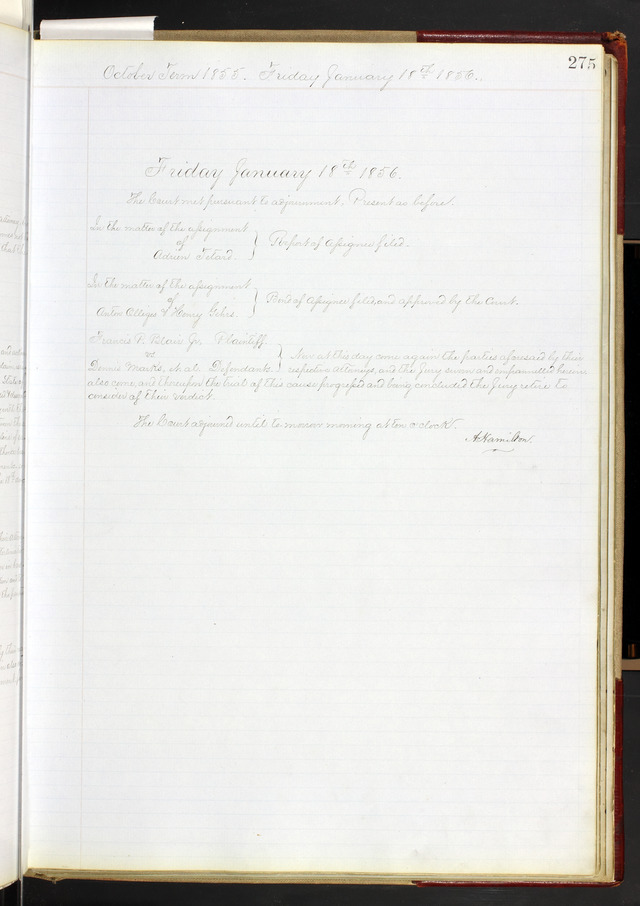 275
October Term 1855. Friday January 18th 1856.
Friday January 18th 1856.
The Court met pursuant to adjournment. Present as before.
In the matter of the assignment
of
Adrien Tetard.
} Report of Assignee filed.
In the matter of the assignment
of
Anton & Henry Gehrs.
} Bond of Assignee filed and approved by the Court.
Francis P. Blair Jr. Plaintiff.
vs
Dennis Marks, et al. Defendants.
} Now at this day come again the parties aforesaid by their
respective attorneys, and the Jury sworn and empannelled herein
also come, and thereupon the trial of this cause progressed and being concluded the Jury retire to
consider of their verdict.
The Court adjourned until to morrow morning at ten o'clock.
A Hamilton.